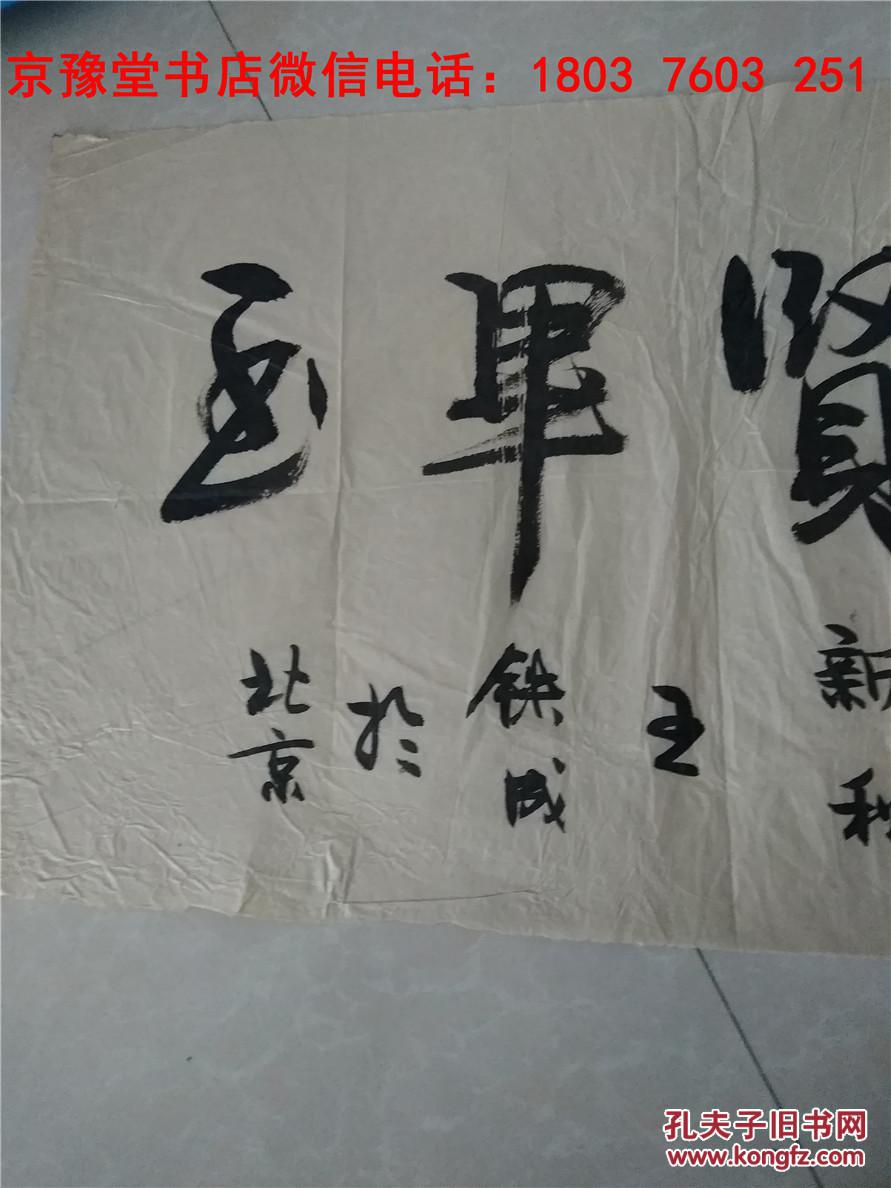 京豫堂书店微信电话：1803 7603 251
賢畢至
新秋
王
铁成
於
北京
孔夫子旧书网
www.kongfz.com